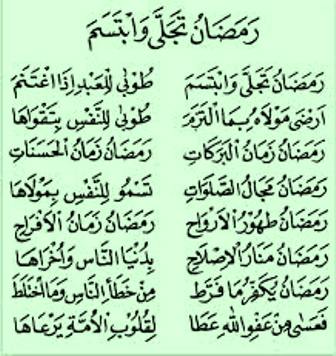 رَمَضَانُ تَجَلَّى وَابْتَسَمَ
رَمَضَانُ تَجَلَّى وَابْتَسَمَ طُوْبٰى لِلْعَبْدِ إِذَا اغْتَنَمَ
اَرْضٰى مَوْلَاهُ بِمَا الْتَزَمَ طُوْبٰى لِلنَّفْسِ بِتَقْوَاهَا
رَمَضَانُ زَمَانُ الْبَرَكَاتِ رَمَضَانُ زَمَانُ الْحَسَنَاتِ
رَمَضَانُ مَجَالُ الصَّلَوَاتِ تَسْمُو لِلنَّفْسِ بِمَوْلَاهَا
رَمَضَانُ طَهُوْرُ الْاَرْوَاحِ رَمَضَانُ زَمَانُ الْاَفْرَاحِ
رَمَضَانُ مَنَارُ الْاِصْلَاحِ بِدُنْيَا النَّاسِ وَاُخْرَاهَا
رَمَضَانُ يُكَفِّرُ مَا فَرَطَ مِنْ خَطَأِ النَّاسِ وَمَا اخْتَلَطَ
فَعَسٰى مِنْ عَفْوِ اللهِ عَطَا لِقُلُوْبِ الْاُمَّةِ يَرْعَاهَا